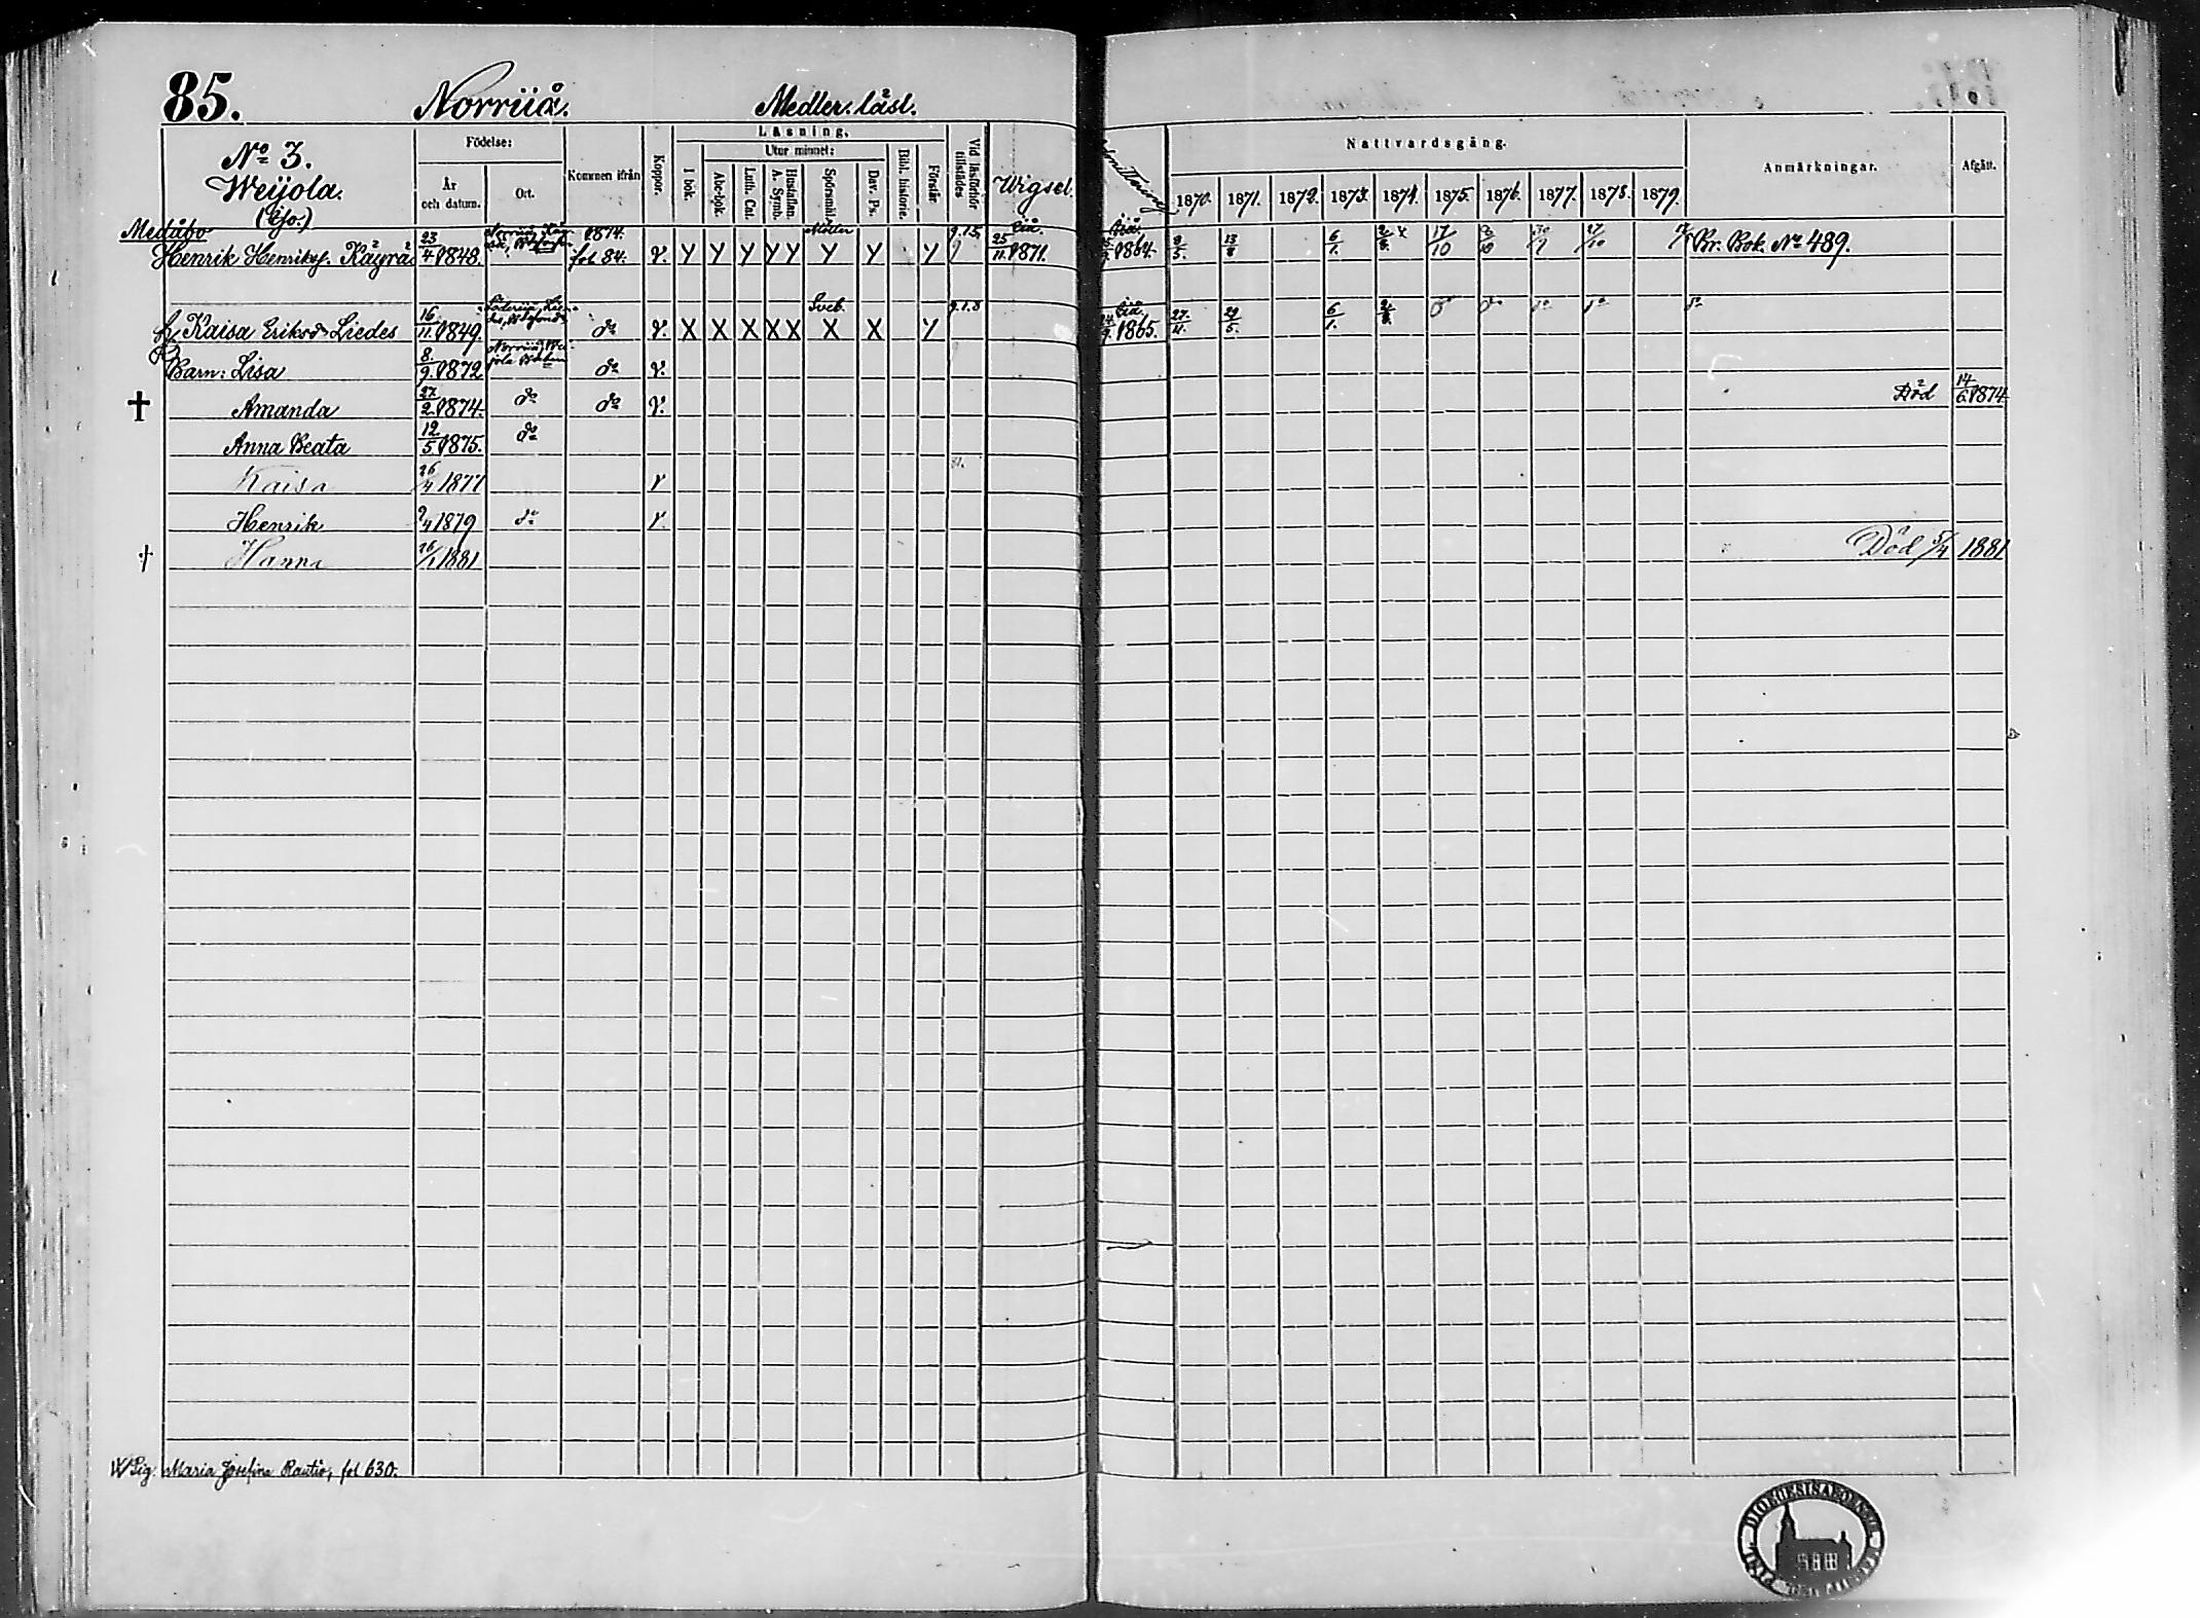 85. Norriiå. Medler. läst.
Nº 3.
Weijola.
Födelse:
År och datum.
Ort.
Kommen ifrån
Koppor.
Läsning.
I bok.
Utur minnet:
Abc-bok.
Luth. Cat.
A. Symb. Hustaflan.
Spörsmål.
Dav. Ps.
Bibl. historie.
Förstår
Vid läsförhör tillstädes
Wigsel.
Nattvardsgång.
1870. 1871. 1872. 1873. 1874. 1875. 1876. 1877. 1878. 1879.
Anmärkningar.
Afgått.
Medåbo
Henrik Henrikss. Käyrä 23/4 1848. 1874. fol 84. v. Y Y Y Y Y Y Y Y 25/11 1871. 1864. 13/8 6/1. 17/10 27/10 Br. Bok. Nº 489.
h. Kaisa Eriksdr Liedes 16/11. 1849. dº v. X X X X X Sveb. X X Y 1865. 6/1.
Barn: Lisa 8./9. 1872 dº v.
† Amanda 27/2. 1874. dº dº v. Död 14/6. 1874
Anna Beata 12/5. 1875. dº
Kaisa 26/4 1877 v
Henrik 9/4 1879 dº v.
† Hanna 26/1 1881 Död 5/4 1881
Maria Josefina Rautio, fol 630.